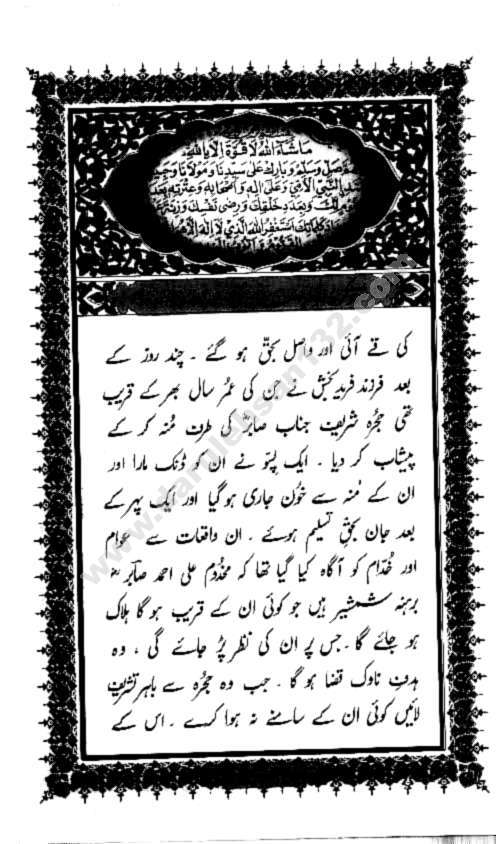 ماشاء الله لا قوة الا بالله
وصل وسلم وبارك على سيدنا ومولانا
النبي الامي وعلى اله واصحابه وعترته بعدد
وبعدد خلقك ورضى نفسك وزنة
استغفر الله الذي لا اله الا هو
کی قے آئی اور واصل بحق ہو گئے ۔ چند روز کے
بعد فرزند فرید بخش نے جن کی عمر سال بھر کے قریب
تھی حجرہ شریف جناب صابرؒ کی طرف مُنہ کر کے
پیشاب کر دیا ۔ ایک پسّو نے ان کو ڈنک مارا اور
ان کے مُنہ سے خُون جاری ہو گیا اور ایک پہر کے
بعد جان بحق تسلیم ہوئے ۔ ان واقعات سے عوام
اور خُدّام کو آگاہ کیا گیا تھا کہ مخدُوم علی احمد صابرؒ
برہنہ شمشیر ہیں جو کوئی ان کے قریب ہو گا ہلاک
ہو جائے گا ۔ جس پر ان کی نظر پڑ جائے گی ، وہ
ہدفِ ناوک قضا ہو گا ۔ جب وہ حجرہ سے باہر تشریف
لائیں کوئی ان کے سامنے نہ ہوا کرے ۔ اس کے